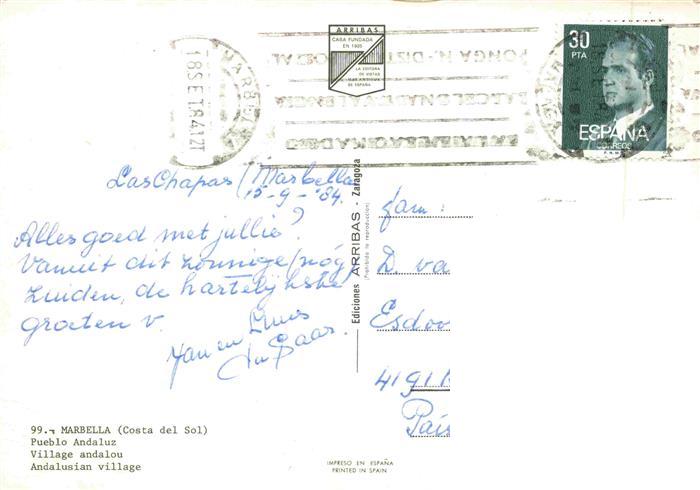 ARRIBAS
CASA FUNDADA
EN 1905
LA EDITORA
DE VISTAS
MAS ANTIGUA
DE ESPAÑA
30
PTA
ESPAÑA
CORREOS
MARBELLA
18SET84
PONGA N.º DIST
BARCELONA VALENCIA
Las Chapas / Marbella
15-9-'84.
Alles goed met jullie?
Vanuit dit zonnige (nóg)
Zuiden, de hartelijkste
groeten v.
Jan en
Ediciones ARRIBAS - Zaragoza
(Prohibida la reproducción)
fam:
D. va
Esdoo
4191 K
País
99.- MARBELLA (Costa del Sol)
Pueblo Andaluz
Village andalou
Andalusian village
IMPRESO EN ESPAÑA
PRINTED IN SPAIN